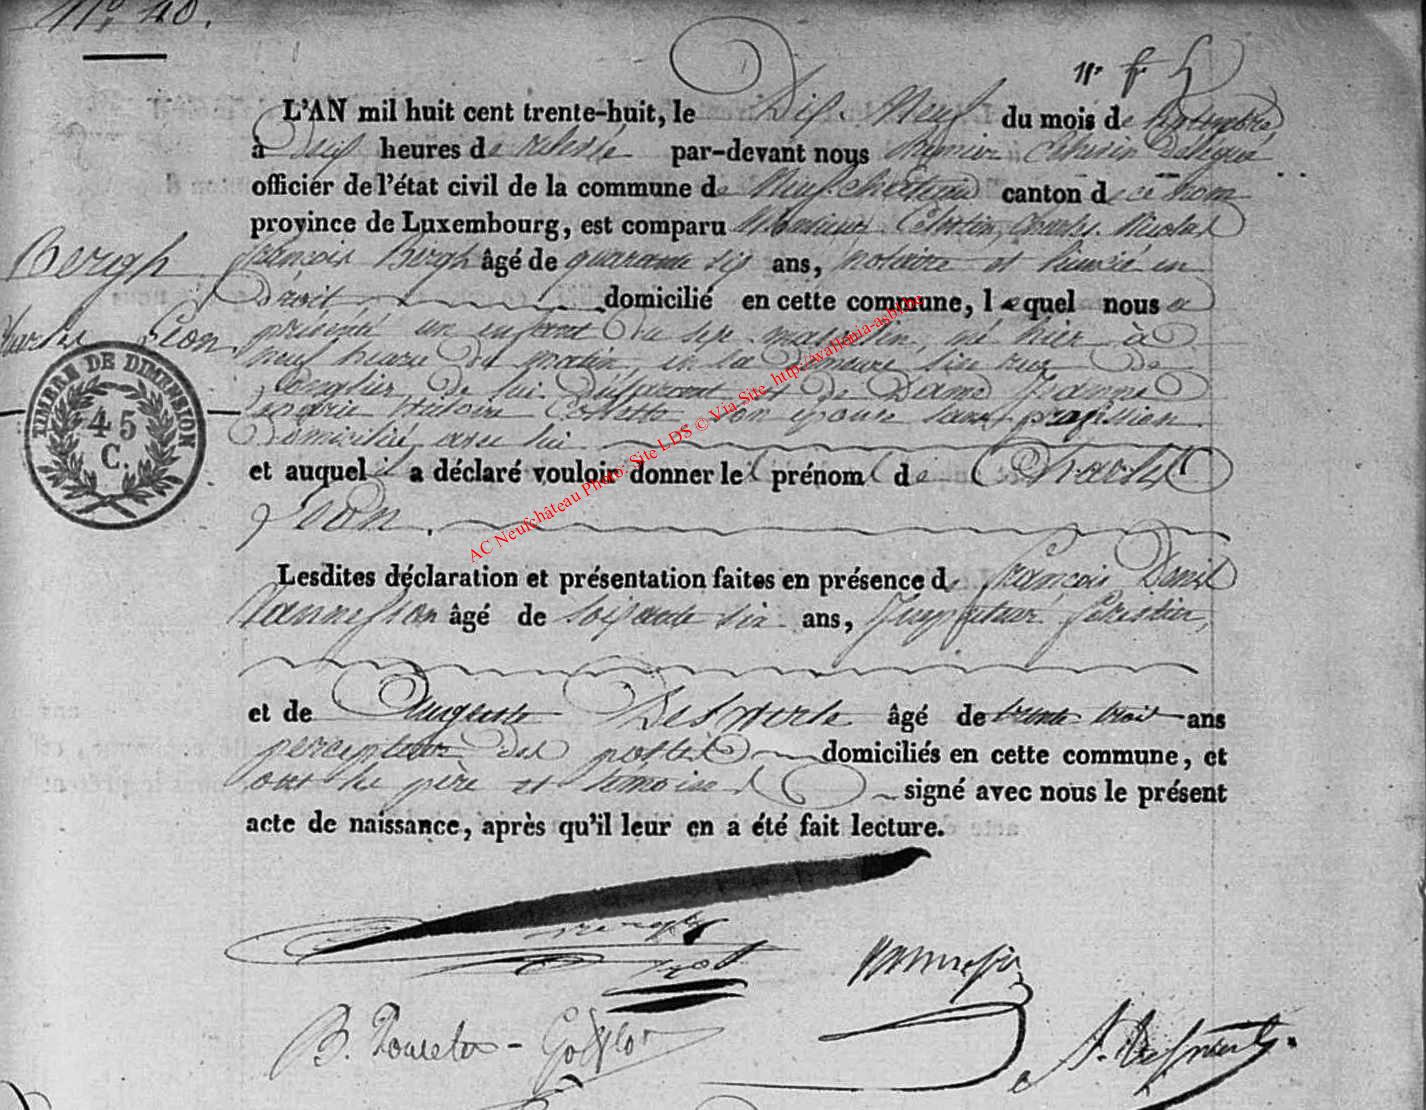 N° 40.
L'AN mil huit cent trente-huit, le Dix Neuf du mois de Novembre
à deux heures de relevée par-devant nous Premier Echevin délégué
officier de l'état civil de la commune de Neufchateau canton de ce nom
province de Luxembourg, est comparu Monsieur Célestin, Charles Nicolas
François Bergh âgé de quarante six ans, notaire et licencié en
Droit domicilié en cette commune, lequel nous a
présenté un enfant du sexe masculin, né hier à
neuf heures du matin, en la demeure sin rue de
de lui déclarant et de Dame Jeanne
Marie Collette son épouse sans profession
domiciliée avec lui
et auquel il a déclaré vouloir donner les prénoms de Charles
Léon.
Lesdites déclaration et présentation faites en présence de François Daniel
âgé de soixante six ans, forestier,
et de Auguste âgé de trente trois ans
percepteur des postes domiciliés en cette commune, et
ont les père et témoins signé avec nous le présent
acte de naissance, après qu'il leur en a été fait lecture.
Bergh
Charles Léon
TIMBRE DE DIMENSION
45
C.
AC Neufchâteau Photo: Site LDS © Via Site http://wallonia-asbl.be